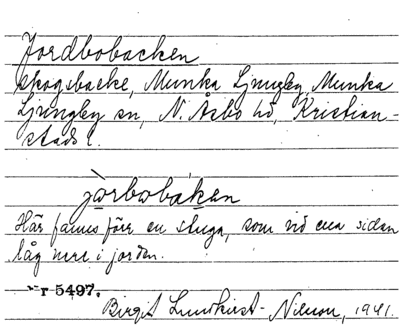 Jordbobacken
skogsbacke, Munka Ljungby, Munka
Ljungby sn, N. Åsbo hd, Kristian-
stads l.
jòrbobákan
Här fanns förr en stuga, som vid ena sidan
låg nere i jorden.
r 5497.
Birgit Lundkvist-Nilsson, 1941.